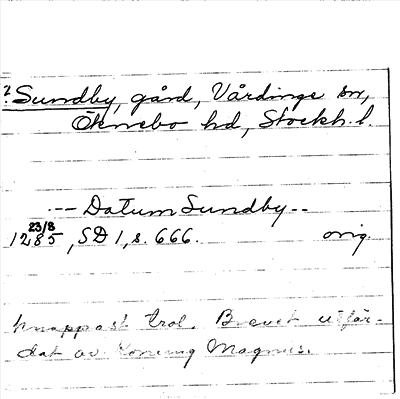 ? Sundby, gård, Vårdinge sn,
Öknebo hd, Stockh. l.
--- Datum Sundby --
23/8
1285, SD 1, s. 666. orig.
knappast trol. Brevet utfär-
dat av konung Magnus.